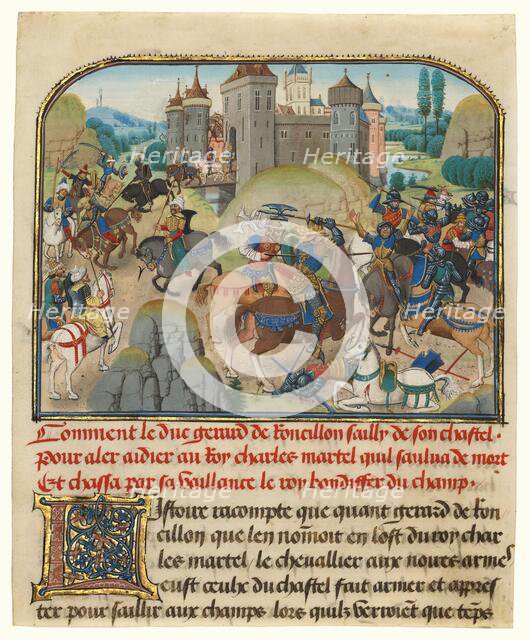 Comment le duc gerard de Roncillon sailly de son chastel.
pour aler aidier au Roy charles martel quil saulua de mort
Et chassa par sa vaillance le roy boydiffer du champ.
Listoire racompte que quant gerard de Ron
cillon que len nomoit en lost du roy char
les martel le cheuallier aux noires armes
eust ceulx du chastel fait armer et apres
ter pour saillir aux champs lors quilz verroiēt que tēps